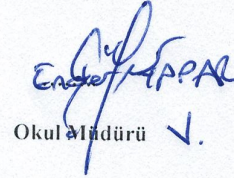 Ender ÇAPPAR
Okul Müdürü V.